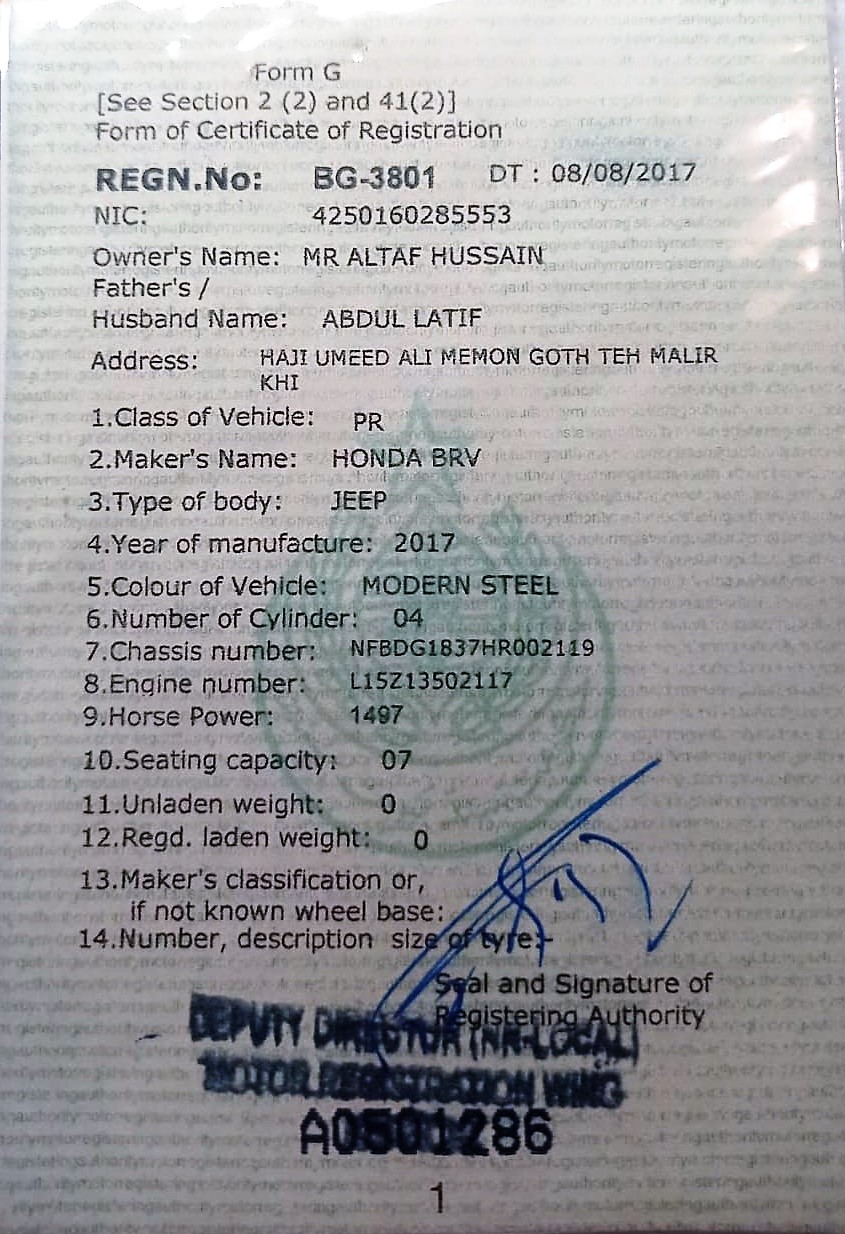 Form G
[See Section 2 (2) and 41(2)]
Form of Certificate of Registration
REGN.No: BG-3801 DT : 08/08/2017
NIC: 4250160285553
Owner's Name: MR ALTAF HUSSAIN
Father's /
Husband Name: ABDUL LATIF
Address: HAJI UMEED ALI MEMON GOTH TEH MALIR
KHI
1.Class of Vehicle: PR
2.Maker's Name: HONDA BRV
3.Type of body: JEEP
4.Year of manufacture: 2017
5.Colour of Vehicle: MODERN STEEL
6.Number of Cylinder: 04
7.Chassis number: NFBDG1837HR002119
8.Engine number: L15Z13502117
9.Horse Power: 1497
10.Seating capacity: 07
11.Unladen weight: 0
12.Regd. laden weight: 0
13.Maker's classification or,
if not known wheel base:
14.Number, description size of tyre:-
Seal and Signature of
Registering Authority
DEPUTY DIRECTOR (NR-LOCAL)
MOTOR REGISTRATION WING
A0501286
1